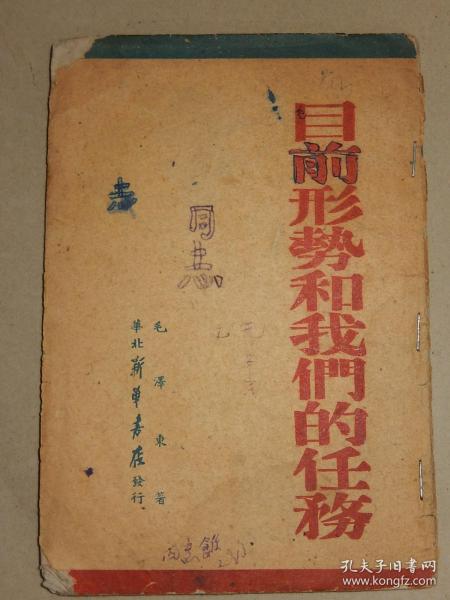 目前形勢和我們的任務
毛澤東著
華北新華書店發行
同志
孔夫子旧书网
www.kongfz.com